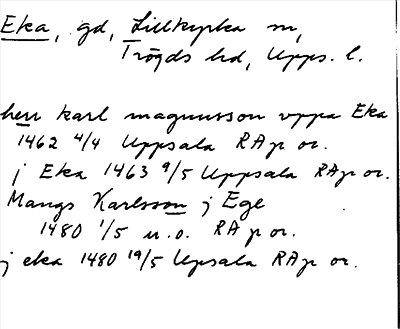 Eka, gd, Lillkyrka sn,
Trögds hd, Upps. l.
herr karl magnusson vppa Eka
1462 4/4 Uppsala RAp or.
j Eka 1463 9/5 Uppsala RAp or.
Mangs Karlsson j Ege
1480 1/5 u.o. RAp or.
j eka 1480 19/5 Upsala RAp or.